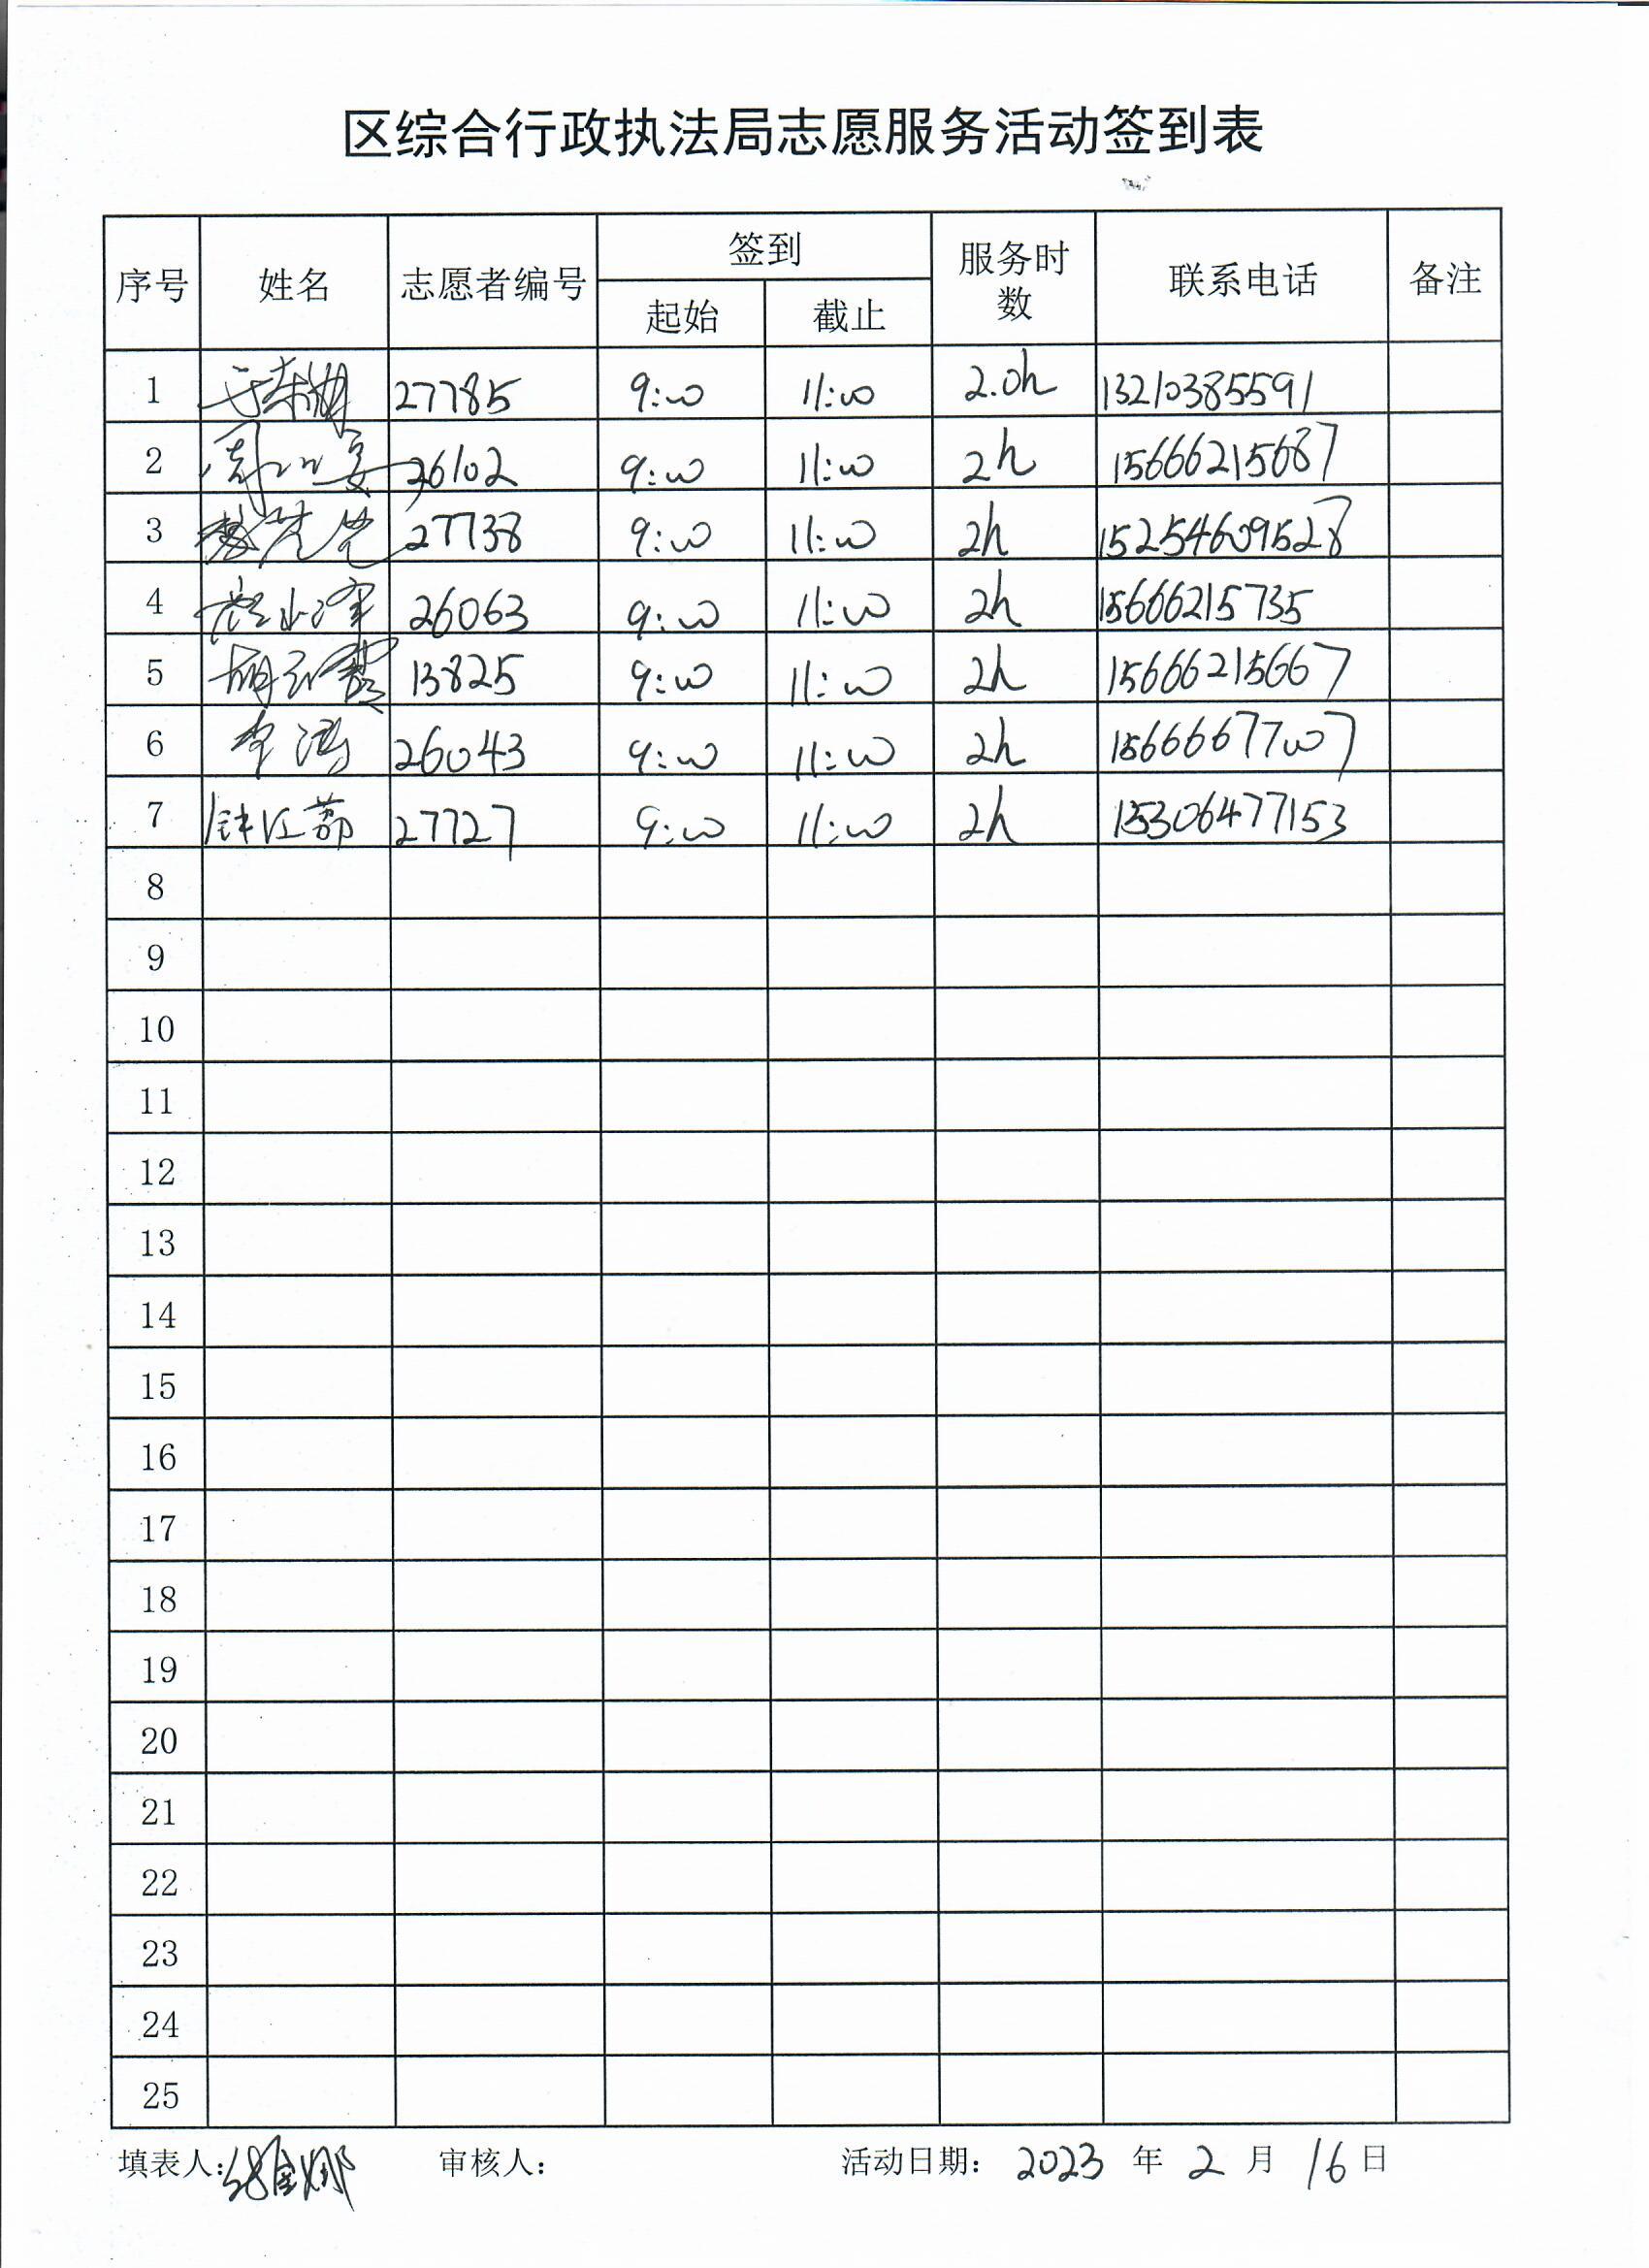 区综合行政执法局志愿服务活动签到表
序号 姓名 志愿者编号 签到 服务时数 联系电话 备注
起始 截止
1 27785 9:00 11:00 2.0h 13210385591
2 26102 9:00 11:00 2h 15666215687
3 27738 9:00 11:00 2h 15254609528
4 26063 9:00 11:00 2h 15666215735
5 13825 9:00 11:00 2h 15666215667
6 李涛 26043 9:00 11:00 2h 15666677007
7 27727 9:00 11:00 2h 15306477153
8
9
10
11
12
13
14
15
16
17
18
19
20
21
22
23
24
25
填表人: 审核人: 活动日期: 2023 年 2 月 16 日